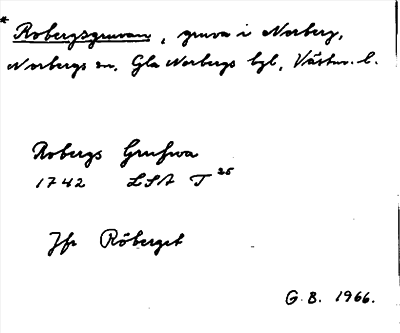 * Robergsgruvan, gruva i Norberg,
Norbergs sn, Gla Norbergs bgl, Västm. l.
Robergs Grufwa
1742 LSA T 25
Jfr Röberget
G. B. 1966.